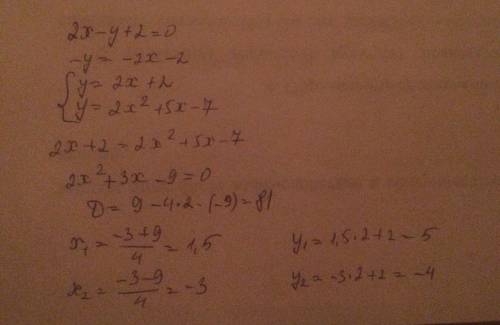 2x-y+2=0
-y= -2x-2
{y= 2x+2
y= 2x²+5x-7
2x+2 = 2x²+5x-7
2x²+3x-9=0
D= 9-4·2·(-9)=81
x₁= (-3+9)/4 = 1,5
y₁= 1,5·2+2=5
x₂= (-3-9)/4 = -3
y₂= -3·2+2= -4